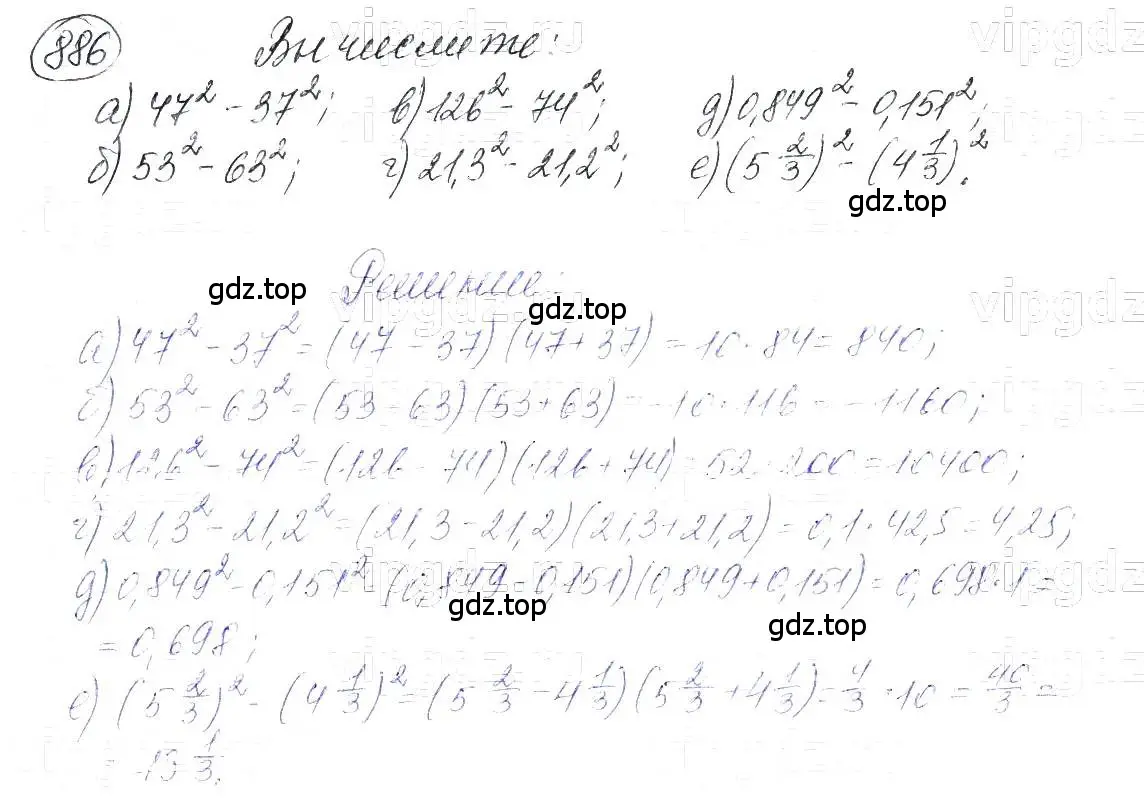 886 Вычислите:
а) 47² - 37²; в) 126² - 74²; д) 0,849² - 0,151²;
б) 53² - 63²; г) 21,3² - 21,2²; е) (5 2/3)² - (4 1/3)².
gdz.top
Решение:
gdz.top
gdz.top
а) 47² - 37² = (47 - 37)(47 + 37) = 10 · 84 = 840;
б) 53² - 63² = (53 - 63)(53 + 63) = -10 · 116 = -1160;
в) 126² - 74² = (126 - 74)(126 + 74) = 52 · 200 = 10400;
г) 21,3² - 21,2² = (21,3 - 21,2)(21,3 + 21,2) = 0,1 · 42,5 = 4,25;
д) 0,849² - 0,151² = (0,849 - 0,151)(0,849 + 0,151) = 0,698 · 1 =
gdz.top
gdz.top
= 0,698;
е) (5 2/3)² - (4 1/3)² = (5 2/3 - 4 1/3)(5 2/3 + 4 1/3) = 4/3 · 10 = 40/3 =
= 13 1/3.
vipgdz.ru
vipgdz
vipgdz.ru
vipgdz
vipgdz.ru
vipgdz